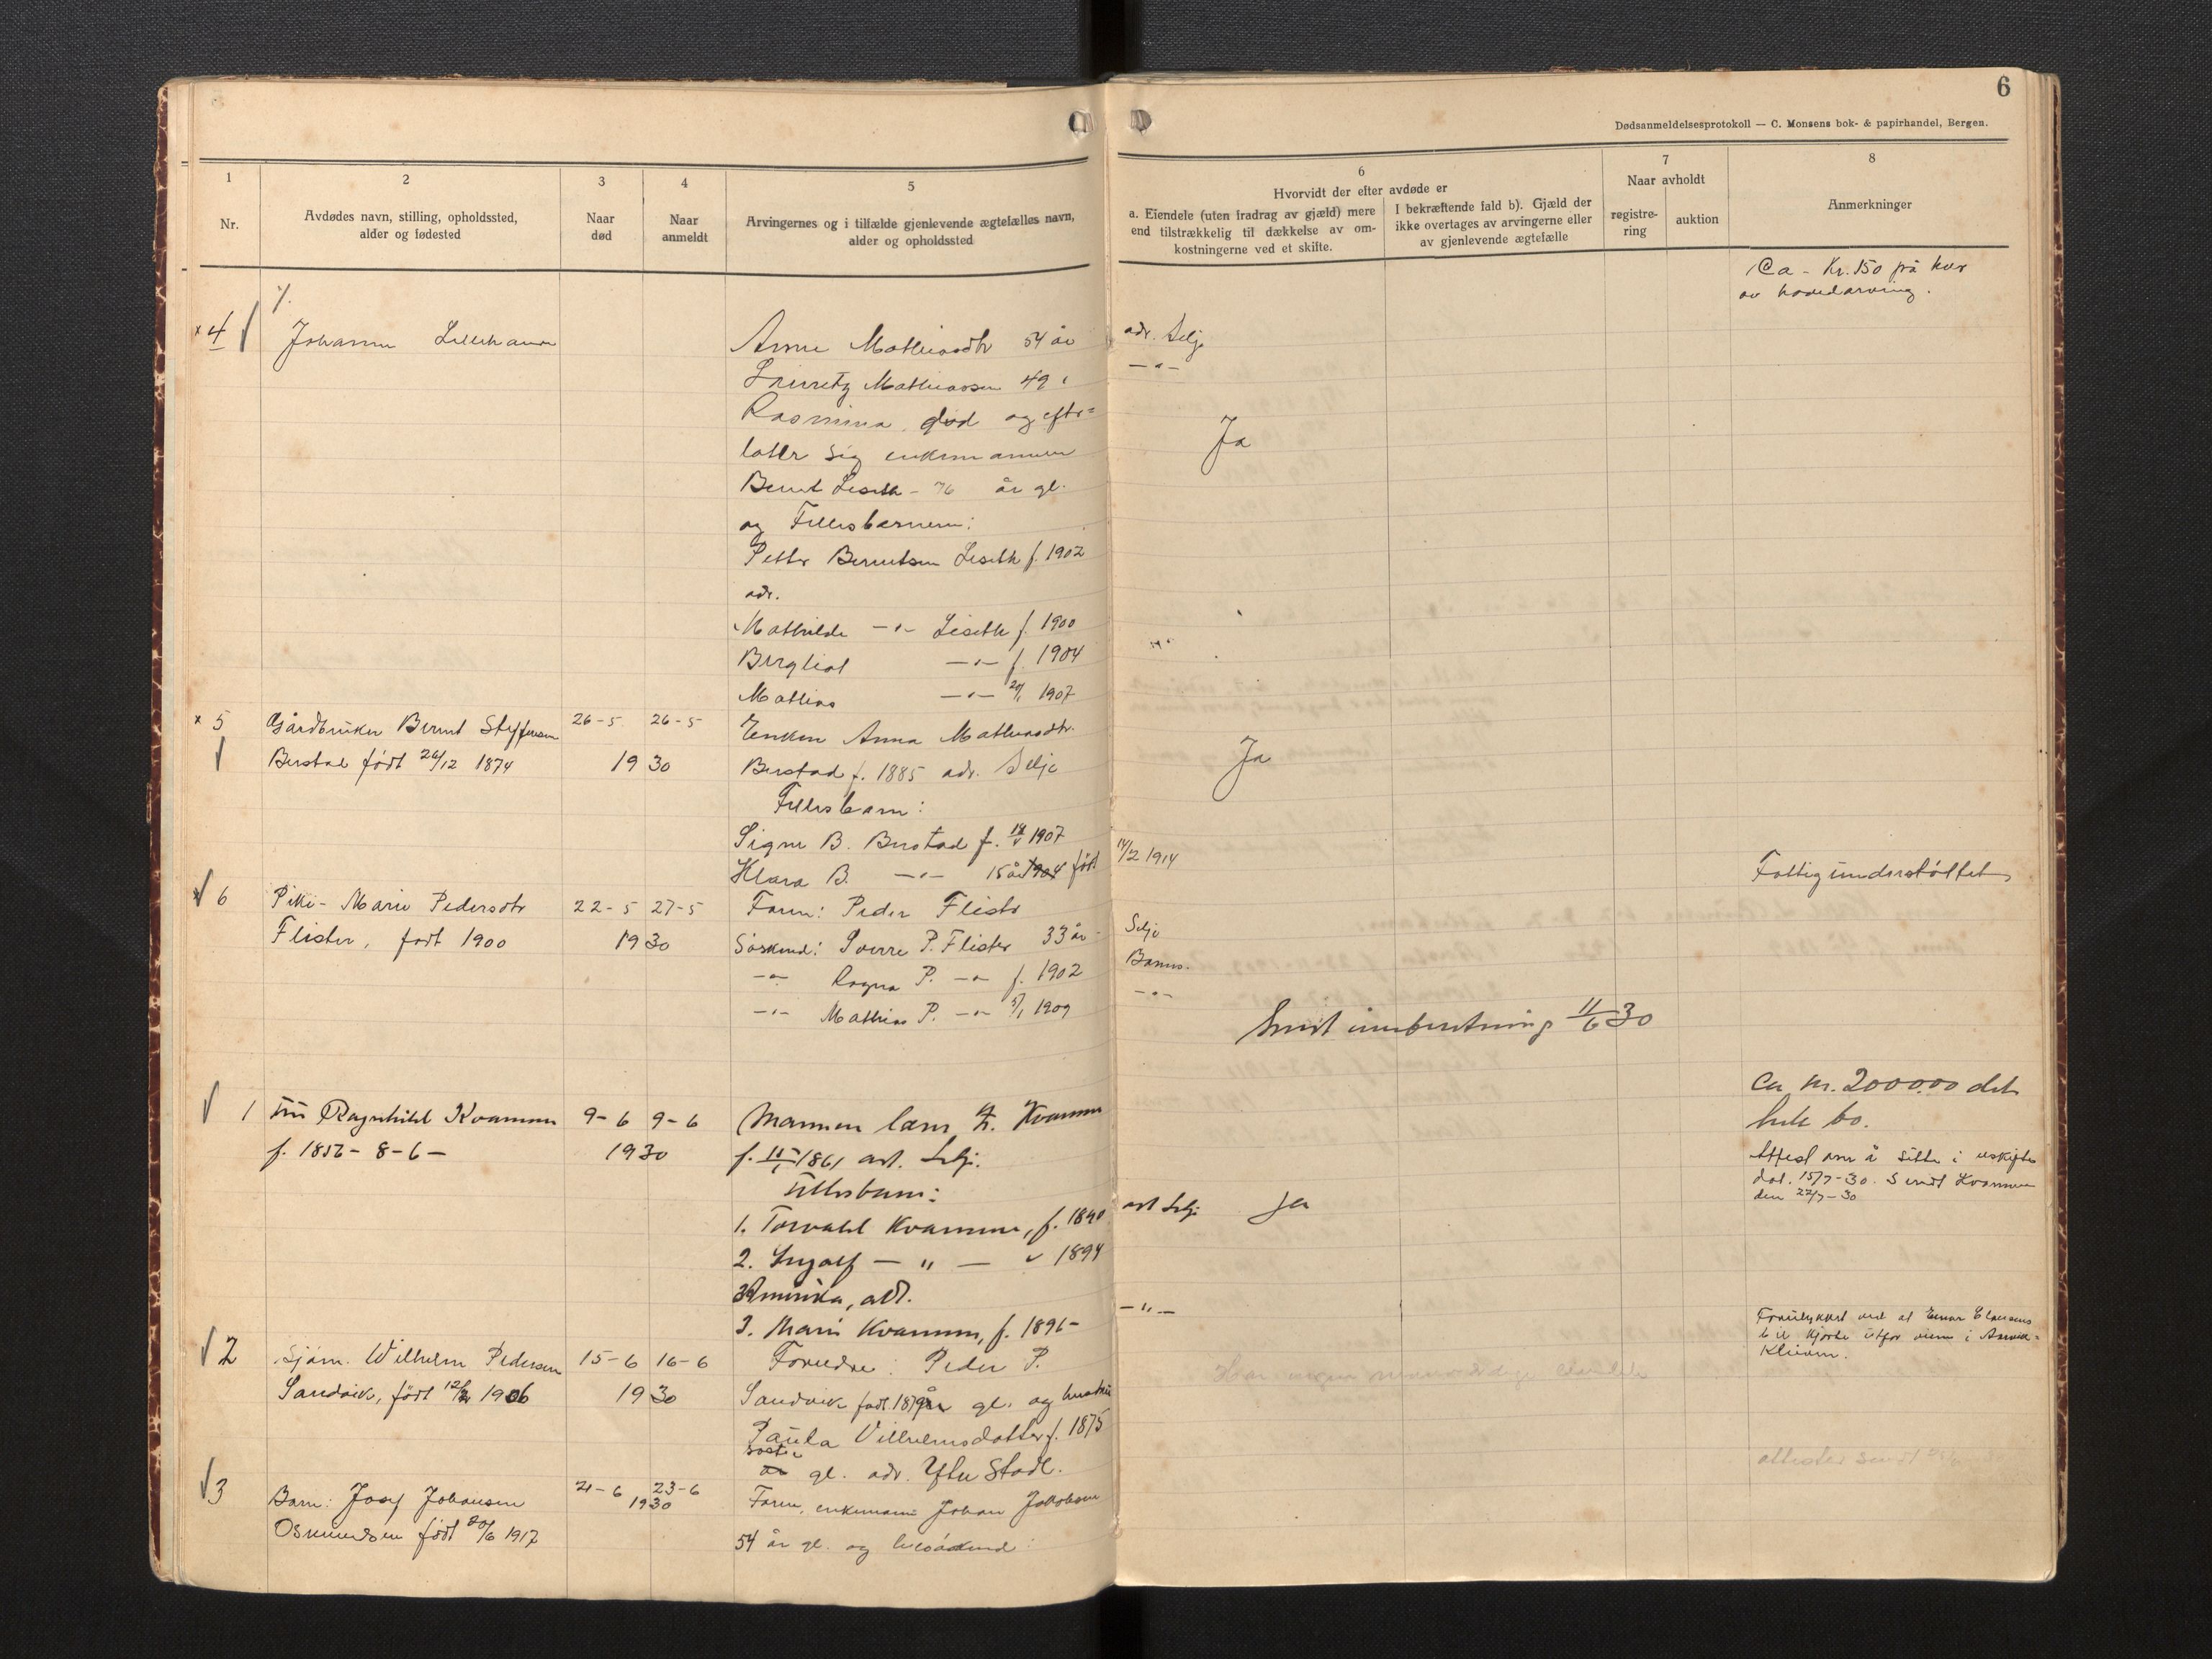 6
Dødsanmeldelsesprotokoll — C. Monsens bok- & papirhandel, Bergen.
1
Nr.
2
Avdødes navn, stilling, opholdssted,
alder og fødested
3
Naar
død
4
Naar
anmeldt
5
Arvingernes og i tilfælde gjenlevende ægtefælles navn,
alder og opholdssted
6
Hvorvidt der efter avdøde er
a. Eiendele (uten fradrag av gjæld) mere
end tilstrækkelig til dækkelse av om-
kostningerne ved et skifte.
I bekræftende fald b). Gjæld der
ikke overtages av arvingerne eller
av gjenlevende ægtefælle
7
Naar avholdt
registre-
ring
auktion
8
Anmerkninger
Ca - Kr. 150 på hver
av hovedarving.
x 4 Johanne
Anne Mathiasdtr 54 år adr. Selje
Lauritz Mathiassen 49 " — " —
Rasmina død og efter=
later sig enkemannen
Bernt Liseth - 76 år gl.
Ja
og Fellesbarnem:
Petter Berntsen Liseth f. 1902
adr.
Mathilde — " — Liseth f. 1900
Bergliot — " — f. 1904
Mathias — " — 1907
x 5 Gårdbruker Bernt Steffensen 26-5 26-5 Enken Anna Mathiasdtr.
Berstad født 26/12 1874 1930 Berstad f. 1885 adr. Selje
Ja
Fellesbarn:
Signe B. Berstad f. 1907
Klara B. — " — 15 år 1904 født 14/2 1914
Fattigunderstøttet
6 Pike - Marie Pedersdtr 22-5 27-5 Faren: Peder Flister
Flister, født 1900 1930 Søskend: Sverre P. Flister 33 år - Selje
— " — Ragna P. — " — f. 1902
— " — Mathias P. — " — 1909 — " —
Sendt innberetning 11/6 30
1 Fru Ragnhild Kvamme 9-6 9-6 Mannen
f. 1856 - 8-6 - 1930 f. 1861 adr. Selje.
Ca kr. 20000,00 det
hele bo.
Attest om å sitte i uskifte
dat. 15/7-30. Sendt Kvamme
den 22/7-30
Fellesbarn:
1. Torvald Kvamme, f. 1890 adr Selje Ja
2. Ingolf — " — " 1894
Amerika, adr.
3. Marie Kvamme, f. 1896 - — " —
2 Sjøm. Wilhelm Pedersen 15-6 16-6 Foreldre: Peder P.
Sandvik, født 1906 1930 Sandvik født 1879 år gl. og hustru
Paula Vilhelmsdotter f. 1875
gl. adr. Ytre Stadt.
Forulykket ved at Einar
bil kjørte utfor veien i
attester sendt
3 Barn: Josef Johansen 21-6 23-6 Faren, enkemann Johan Jakobsen
Osmundsen født 20/6 1917 1930 54 år gl. og